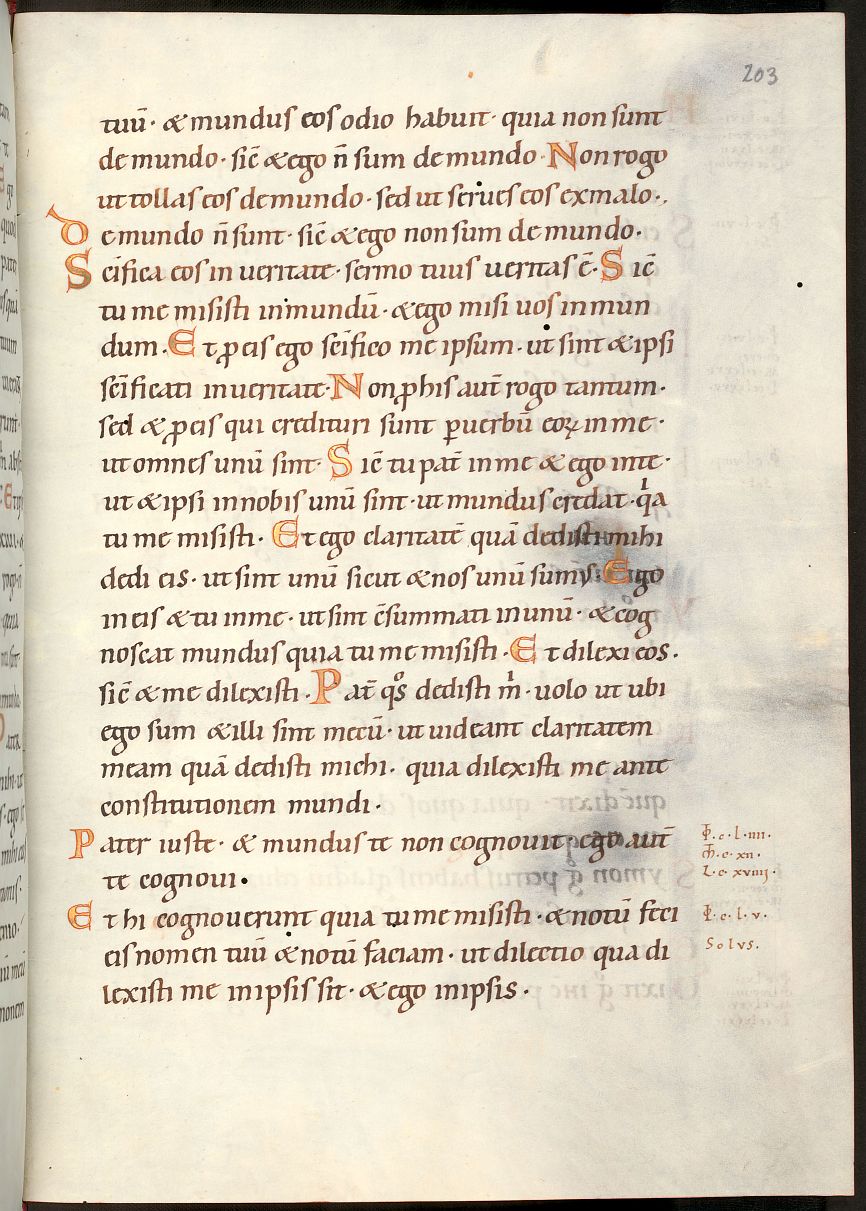 203
tuū· & mundus eos odio habuit· quia non sunt
de mundo· sic̄ & ego n̄ sum de mundo· Non rogo
ut tollas eos de mundo· sed ut serues eos ex malo·,
De mundo n̄ sunt· sic̄ & ego non sum de mundo·
Sc̄ifica eos in ueritate· sermo tuus ueritas ē· Sic̄
tu me misisti in mundū· & ego misi uos in mun
dum· Et ꝓ eis ego sc̄ifico me ipsum· ut sint & ipsi
sc̄ificati in ueritate· Non ꝓ his aut̄ rogo tantum·
sed & ꝓ eis qui credituri sunt ꝑ uerbū eoꝝ in me·
ut omnes unū sint· Sic̄ tu pat̄ in me & ego in te·
ut & ipsi in nobis unū sint· ut mundus credat· qͥa
tu me misisti· Et ego claritatē quā dedisti mihi
dedi eis· ut sint unū sicut & nos unū sumꝰ· Ego
in eis & tu in me· ut sint c̄summati in unū· & cog
noscat mundus quia tu me misisti· Et dilexi eos·
sic̄ & me dilexisti· Pat̄ qͦs dedisti mͥ· uolo ut ubi
ego sum & illi sint mecū· ut uideant claritatem
meam quā dedisti michi· quia dilexisti me ante
constitutionem mundi·
Pater iuste· & mundus te non cognouit· ego aut̄
te cognoui·
Et hi cognouerunt quia tu me misisti· & notū feci
eis nomen tuū & notū faciam· ut dilectio qua di
lexisti me in ipsis sit· & ego in ipsis·
c·l·iiii·
c·xii·
L·c·xviiii·
c·l·v·
Solvs·